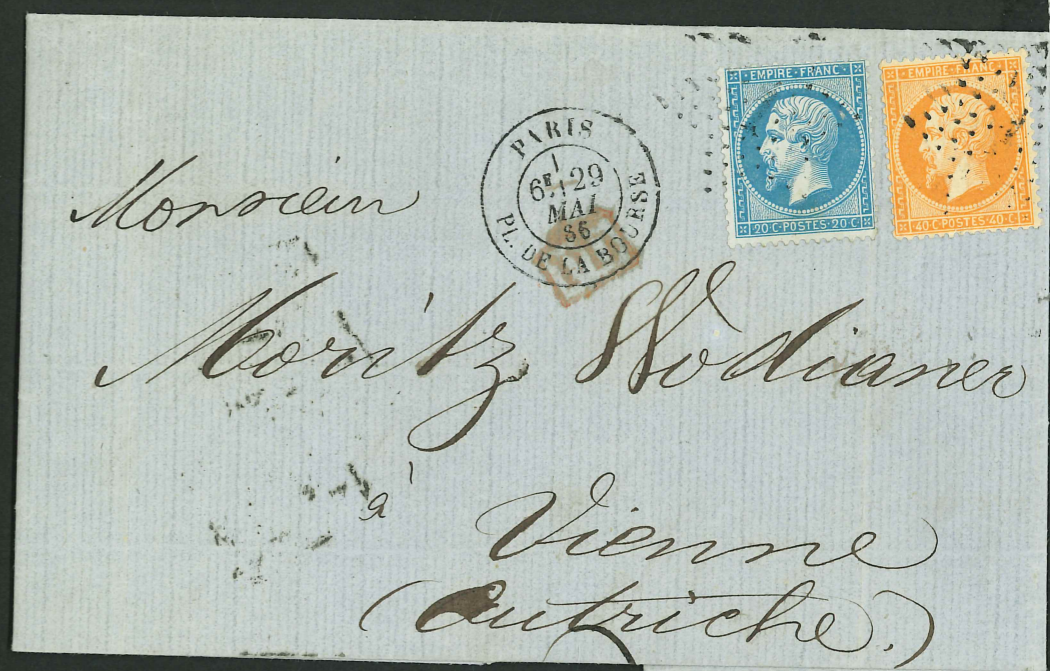 EMPIRE·FRANC·
20·C·POSTES·20·C
EMPIRE·FRANC·
40·C·POSTES·40·C
PARIS
6E 29
MAI
66
PL. DE LA BOURSE
Monsieur
Moritz Wodianer
à
Vienne
(Autriche.)